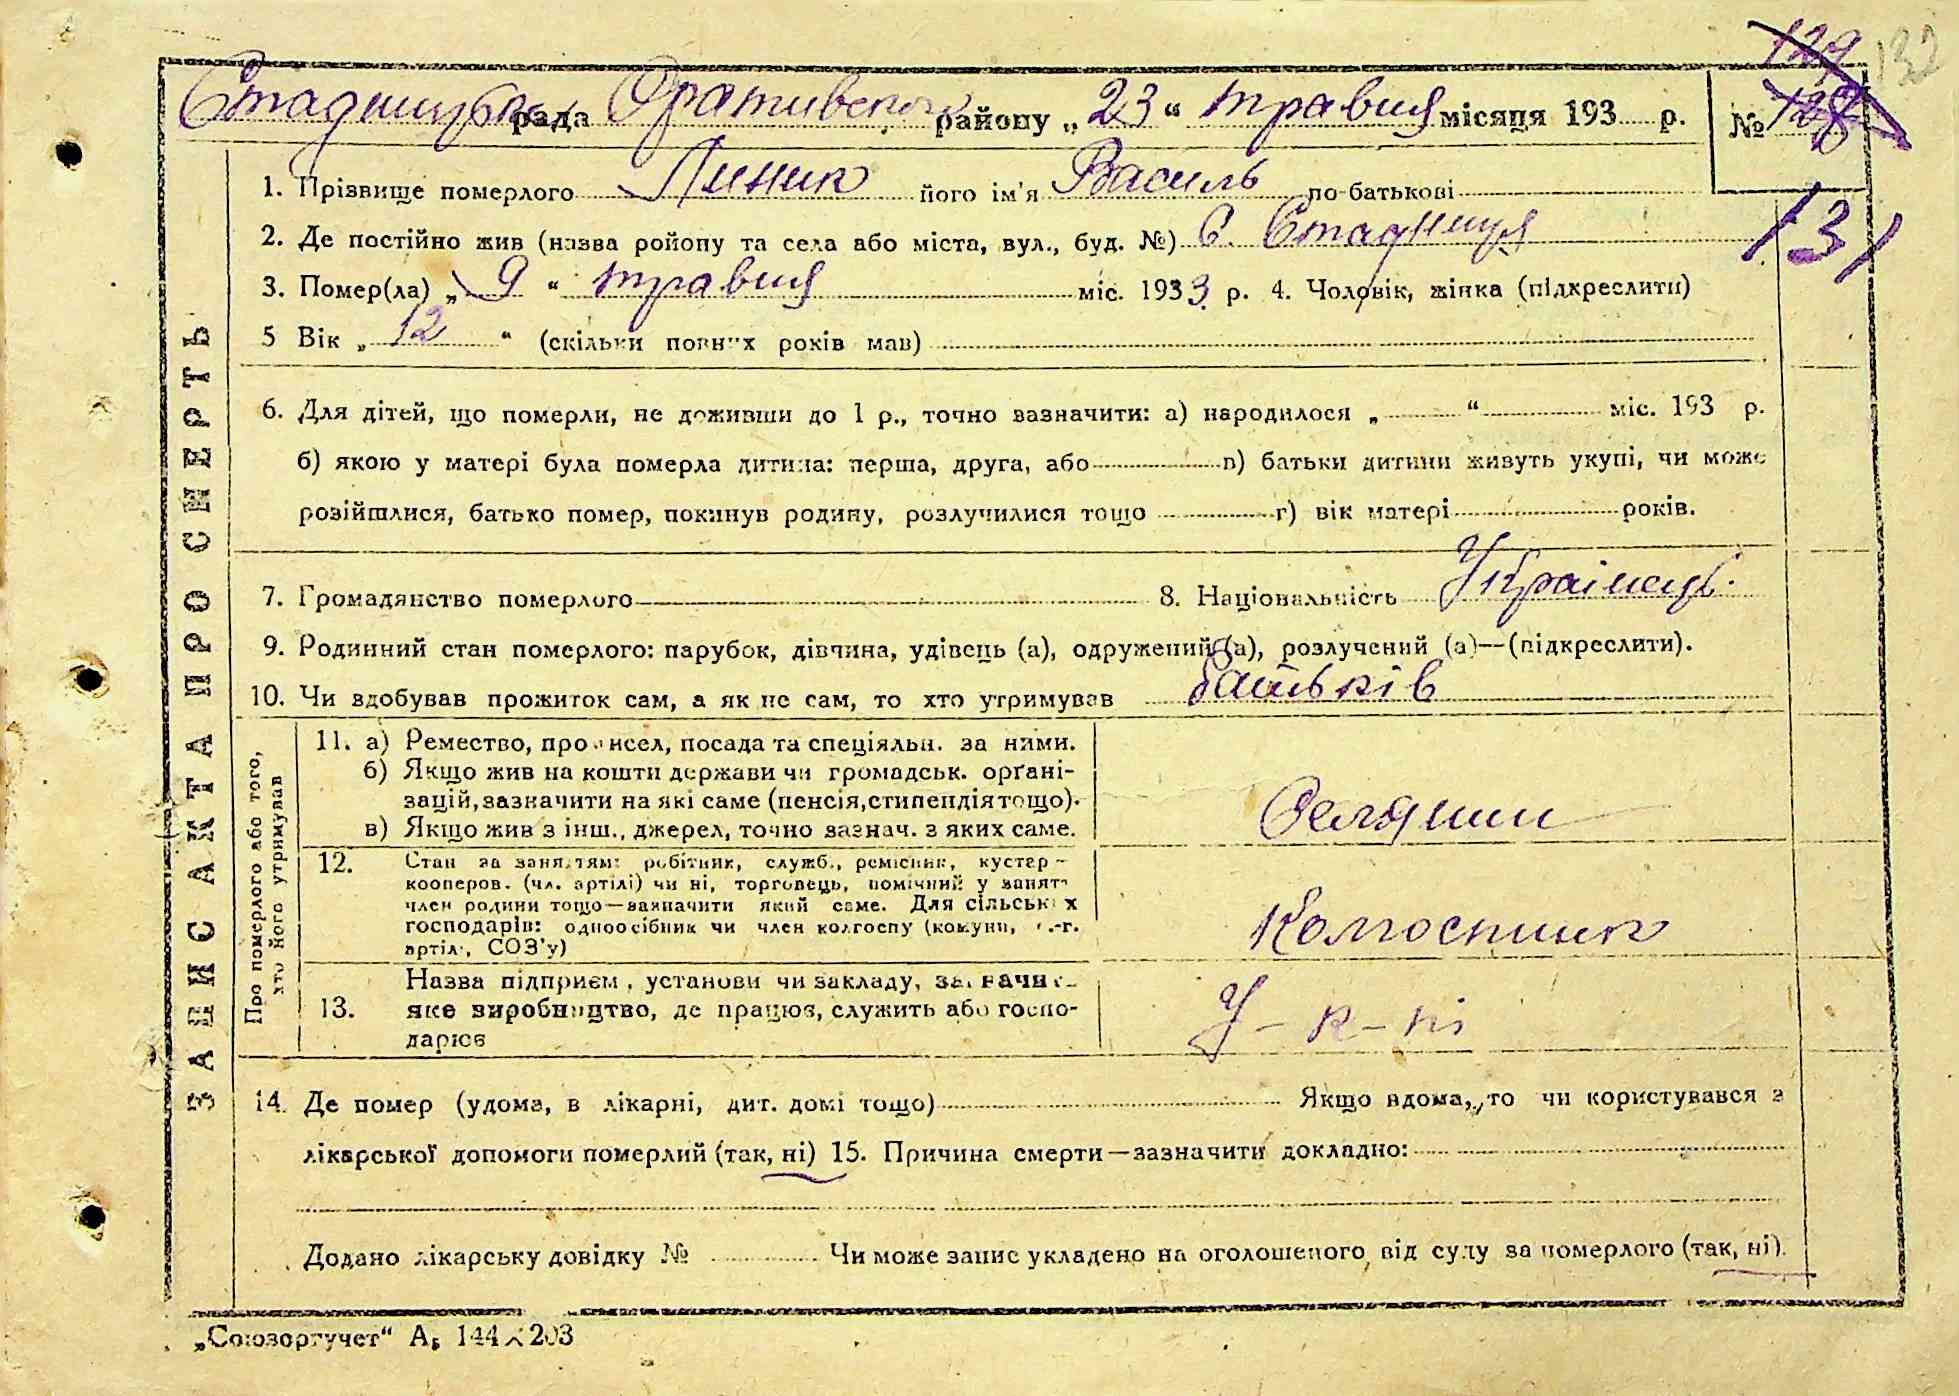 132
129
Стадницька рада Оративського району „23“ травня місяця 193 р. № 128
131
1. Прізвище померлого Линик його ім'я Василь по-батькові
2. Де постійно жив (назва ройону та села або міста, вул., буд. №) С. Стадниця
3. Помер(ла) „9“ травня міс. 1933 р. 4. Чоловік, жінка (підкреслити)
5 Вік „12“ (скільки повних років мав)
6. Для дітей, що померли, не доживши до 1 р., точно зазначити: а) народилося „ “ міс. 193 р.
б) якою у матері була померла дитина: перша, друга, або в) батьки дитини живуть укупі, чи може
розійшлися, батько помер, покинув родину, розлучилися тощо г) вік матері років.
7. Громадянство померлого 8. Національність Українець.
9. Родинний стан померлого: парубок, дівчина, удівець (а), одружений (а), розлучений (а)—(підкреслити).
10. Чи вдобував прожиток сам, а як не сам, то хто утримував батьків
ЗАПИС АКТА ПРО СМЕРТЬ
Про померлого або того,
хто його утримував
11. а) Ремество, промисел, посада та спеціяльн. за ними.
б) Якщо жив на кошти держави чи громадськ. орґані-
зацій, зазначити на які саме (пенсія, стипендія тощо).
в) Якщо жив з інш., джерел, точно зазнач. з яких саме.
Селянин
12. Стан за заняттям: робітник, служб., ремісник, кустар-
кооперов. (чл. артілі) чи ні, торговець, помічний у занятт
член родини тощо—зазначити який саме. Для сільських
господарів: одноосібник чи член колгоспу (комуни, с.-г.
артілі, СОЗ'у)
Колгоспник
13. Назва підприєм., установи чи закладу, зазначит-
яке виробництво, де працює, служить або госпо-
дарює
У-к-ні
14. Де помер (удома, в лікарні, дит. домі тощо) Якщо вдома, то чи користувався з
лікарської допомоги померлий (так, ні) 15. Причина смерти—зазначити докладно:
Додано лікарську довідку № Чи може запис укладено на оголошеного від суду за померлого (так, ні).
„Союзоргучет“ А5 144×203